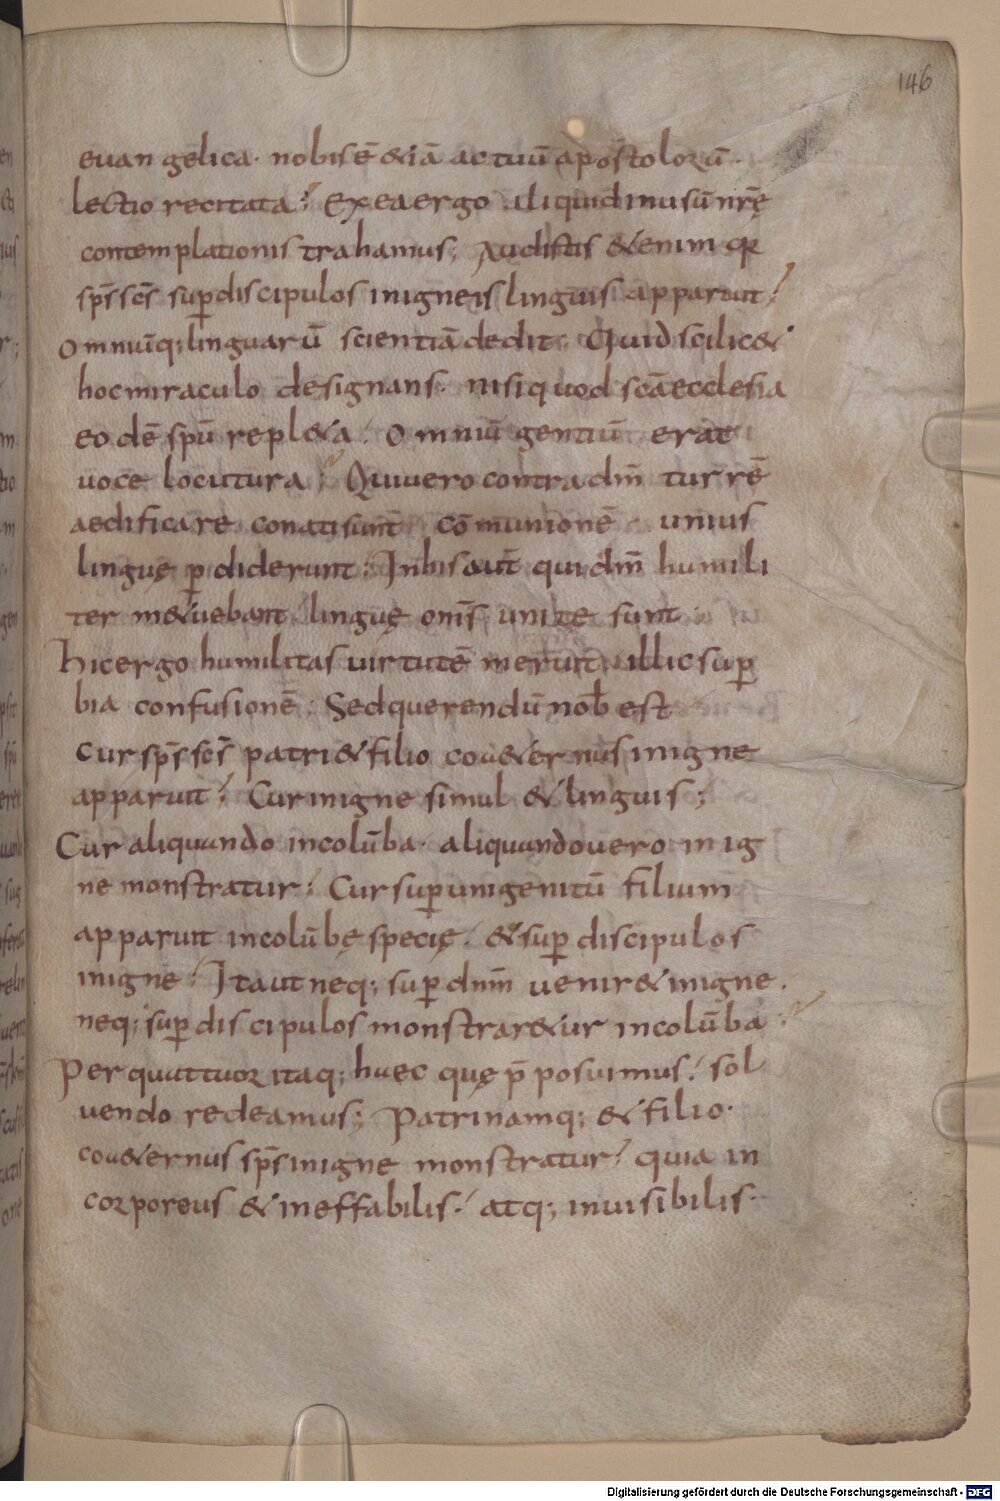 146
euangelica· nobis ē &iā actuū apostolorū·
lectio recitata; Ex ea ergo aliquid in usū nr̄ę
contemplationis trahamus; Audistis &enim qr
sp̄s sc̄s sup̄ discipulos in igneis linguis apparuit;
Omniūq; linguarū scientiā dedit; Quid scilic&
hoc miraculo designans· nisi quod sc̄a ecclesia
eodē spū repl&a· Omniū gentiū erat
uoce locutura; Qui uero contra dm̄ turrē
aedificare conati sunt· cōmunionē unius
linguę p̄diderunt; In his aut̄ qui dm̄ humili
ter m&uebant· linguę om̄s unite sunt·
Hic ergo humilitas uirtutē meruit· illic sup̄
bia confusionē; Sed querendū nob̄ est
cur sp̄s sc̄s patri &filio co&ernus in igne
apparuit; Cur in igne simul & linguis;
Cur aliquando in colūba· aliquando uero in ig
ne monstratur; Cur sup̄ unigenitū filium
apparuit in colūbę specię· & sup̄ discipulos
in igne; Ita ut neq; sup̄ dnm̄ uenir& in igne·
neq; sup̄ discipulos monstrar&ur in colūba;
Per quattuor itaq; haec quę p̄posuimus· sol
uendo redeamus; Patri namq; & filio·
co&ernus sp̄s in igne monstratur· quia in
corporeus & ineffabilis· atq; inuisibilis·
Digitalisierung gefördert durch die Deutsche Forschungsgemeinschaft - DFG